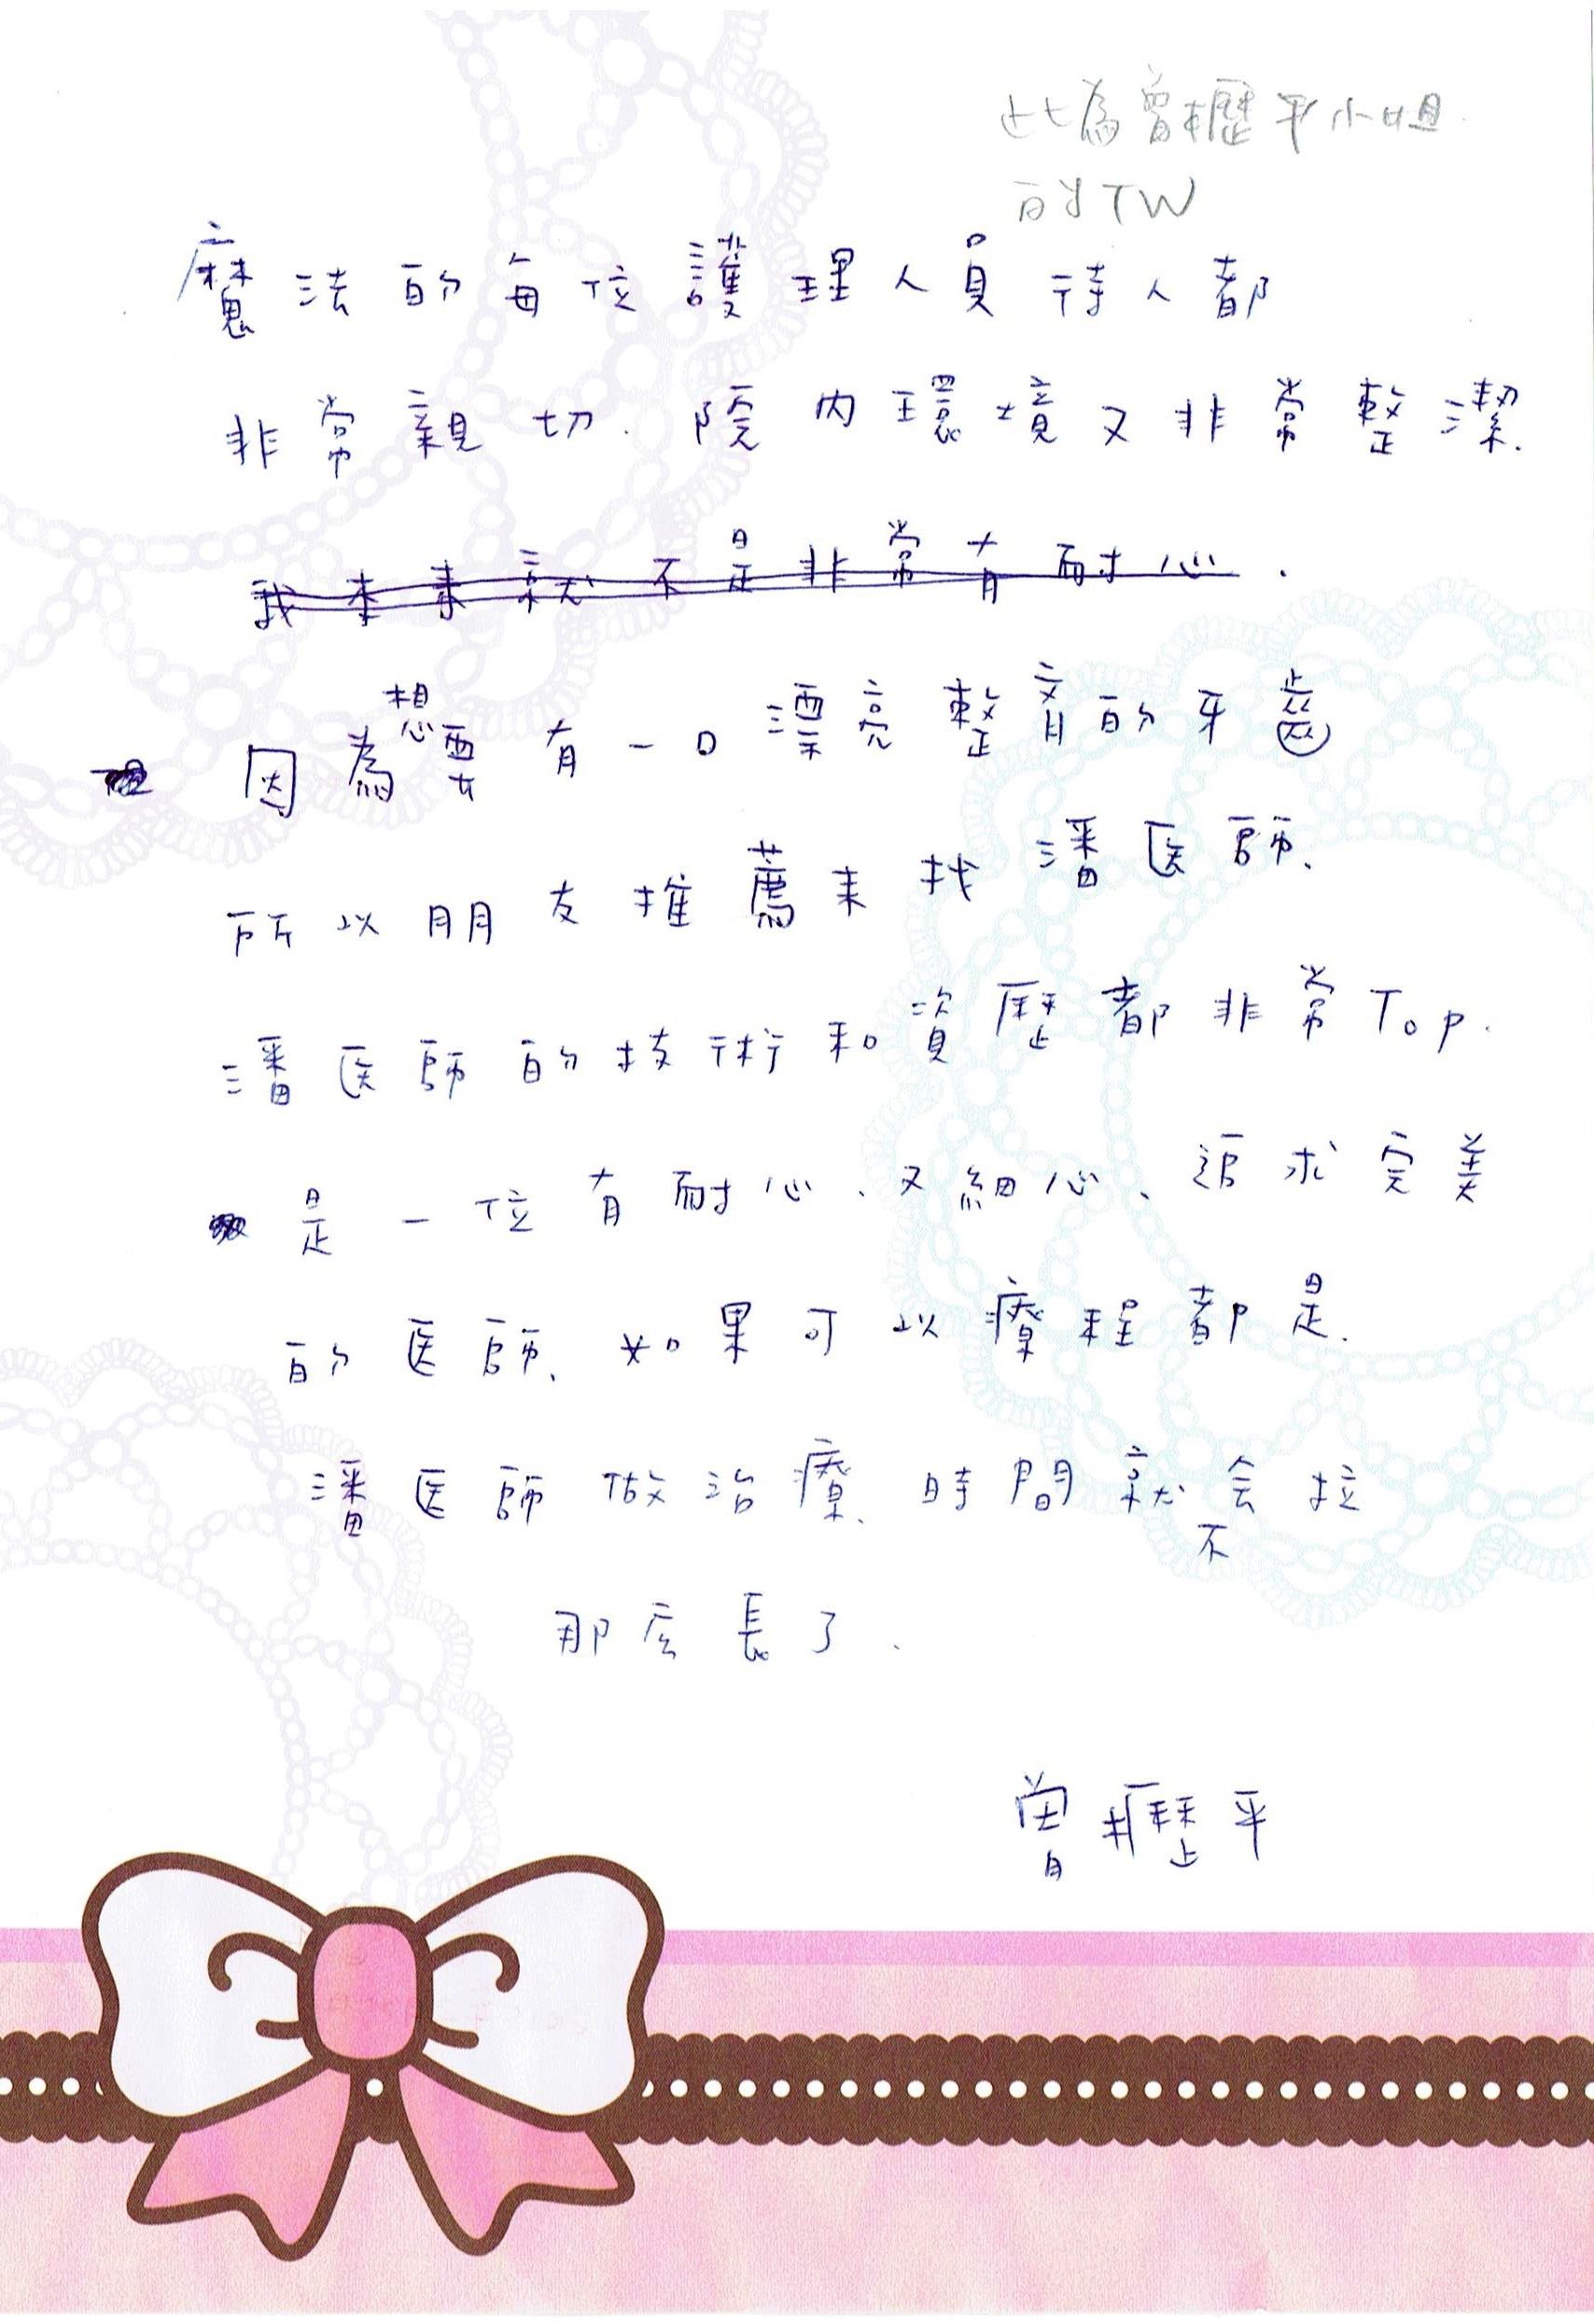 此為曾櫪平小姐
的TW
魔法的每位護理人員待人都
非常親切. 院內環境又非常整潔.
我本來就不是非常有耐心.
因為想要有一口漂亮整齊的牙齒
所以朋友推薦來找潘医師.
潘医師的技術和資歷都非常Top.
是一位有耐心、又細心、追求完美
的医師、如果可以療程都是.
潘医師做治療. 時間就不会拉
那広長了.
曾櫪平